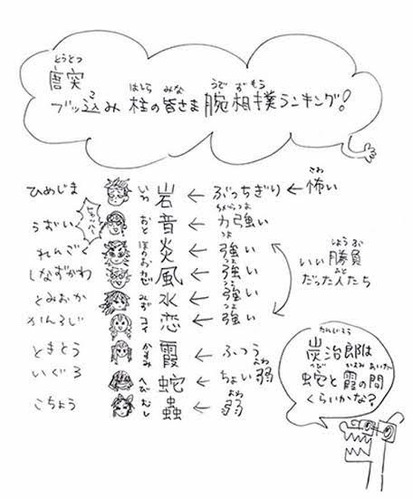 唐突
とうとつ
ブッ込み 柱の皆さま 腕相撲ランキング!
こ はしら みな うで ずもう
ひめじま 岩 いわ ← ぶっちぎり ← 怖い こわ
うずい 音 おと ← 力強い ちからづよ
れんごく 炎 ほのお ← 強い つよ
しなずがわ 風 かぜ ← 強い つよ
とみおか 水 みず ← 強い つよ
かんろじ 恋 こい ← 強い つよ
いい勝負 しょうぶ
だった人たち ひと
ときとう 霞 かすみ ← ふつう
いぐろ 蛇 へび ← ちょい弱 よわ
こちょう 蟲 むし ← 弱 よわ
かまどたんじろう
炭治郎は
蛇と霞の間
へび かすみ あいだ
くらいかな?